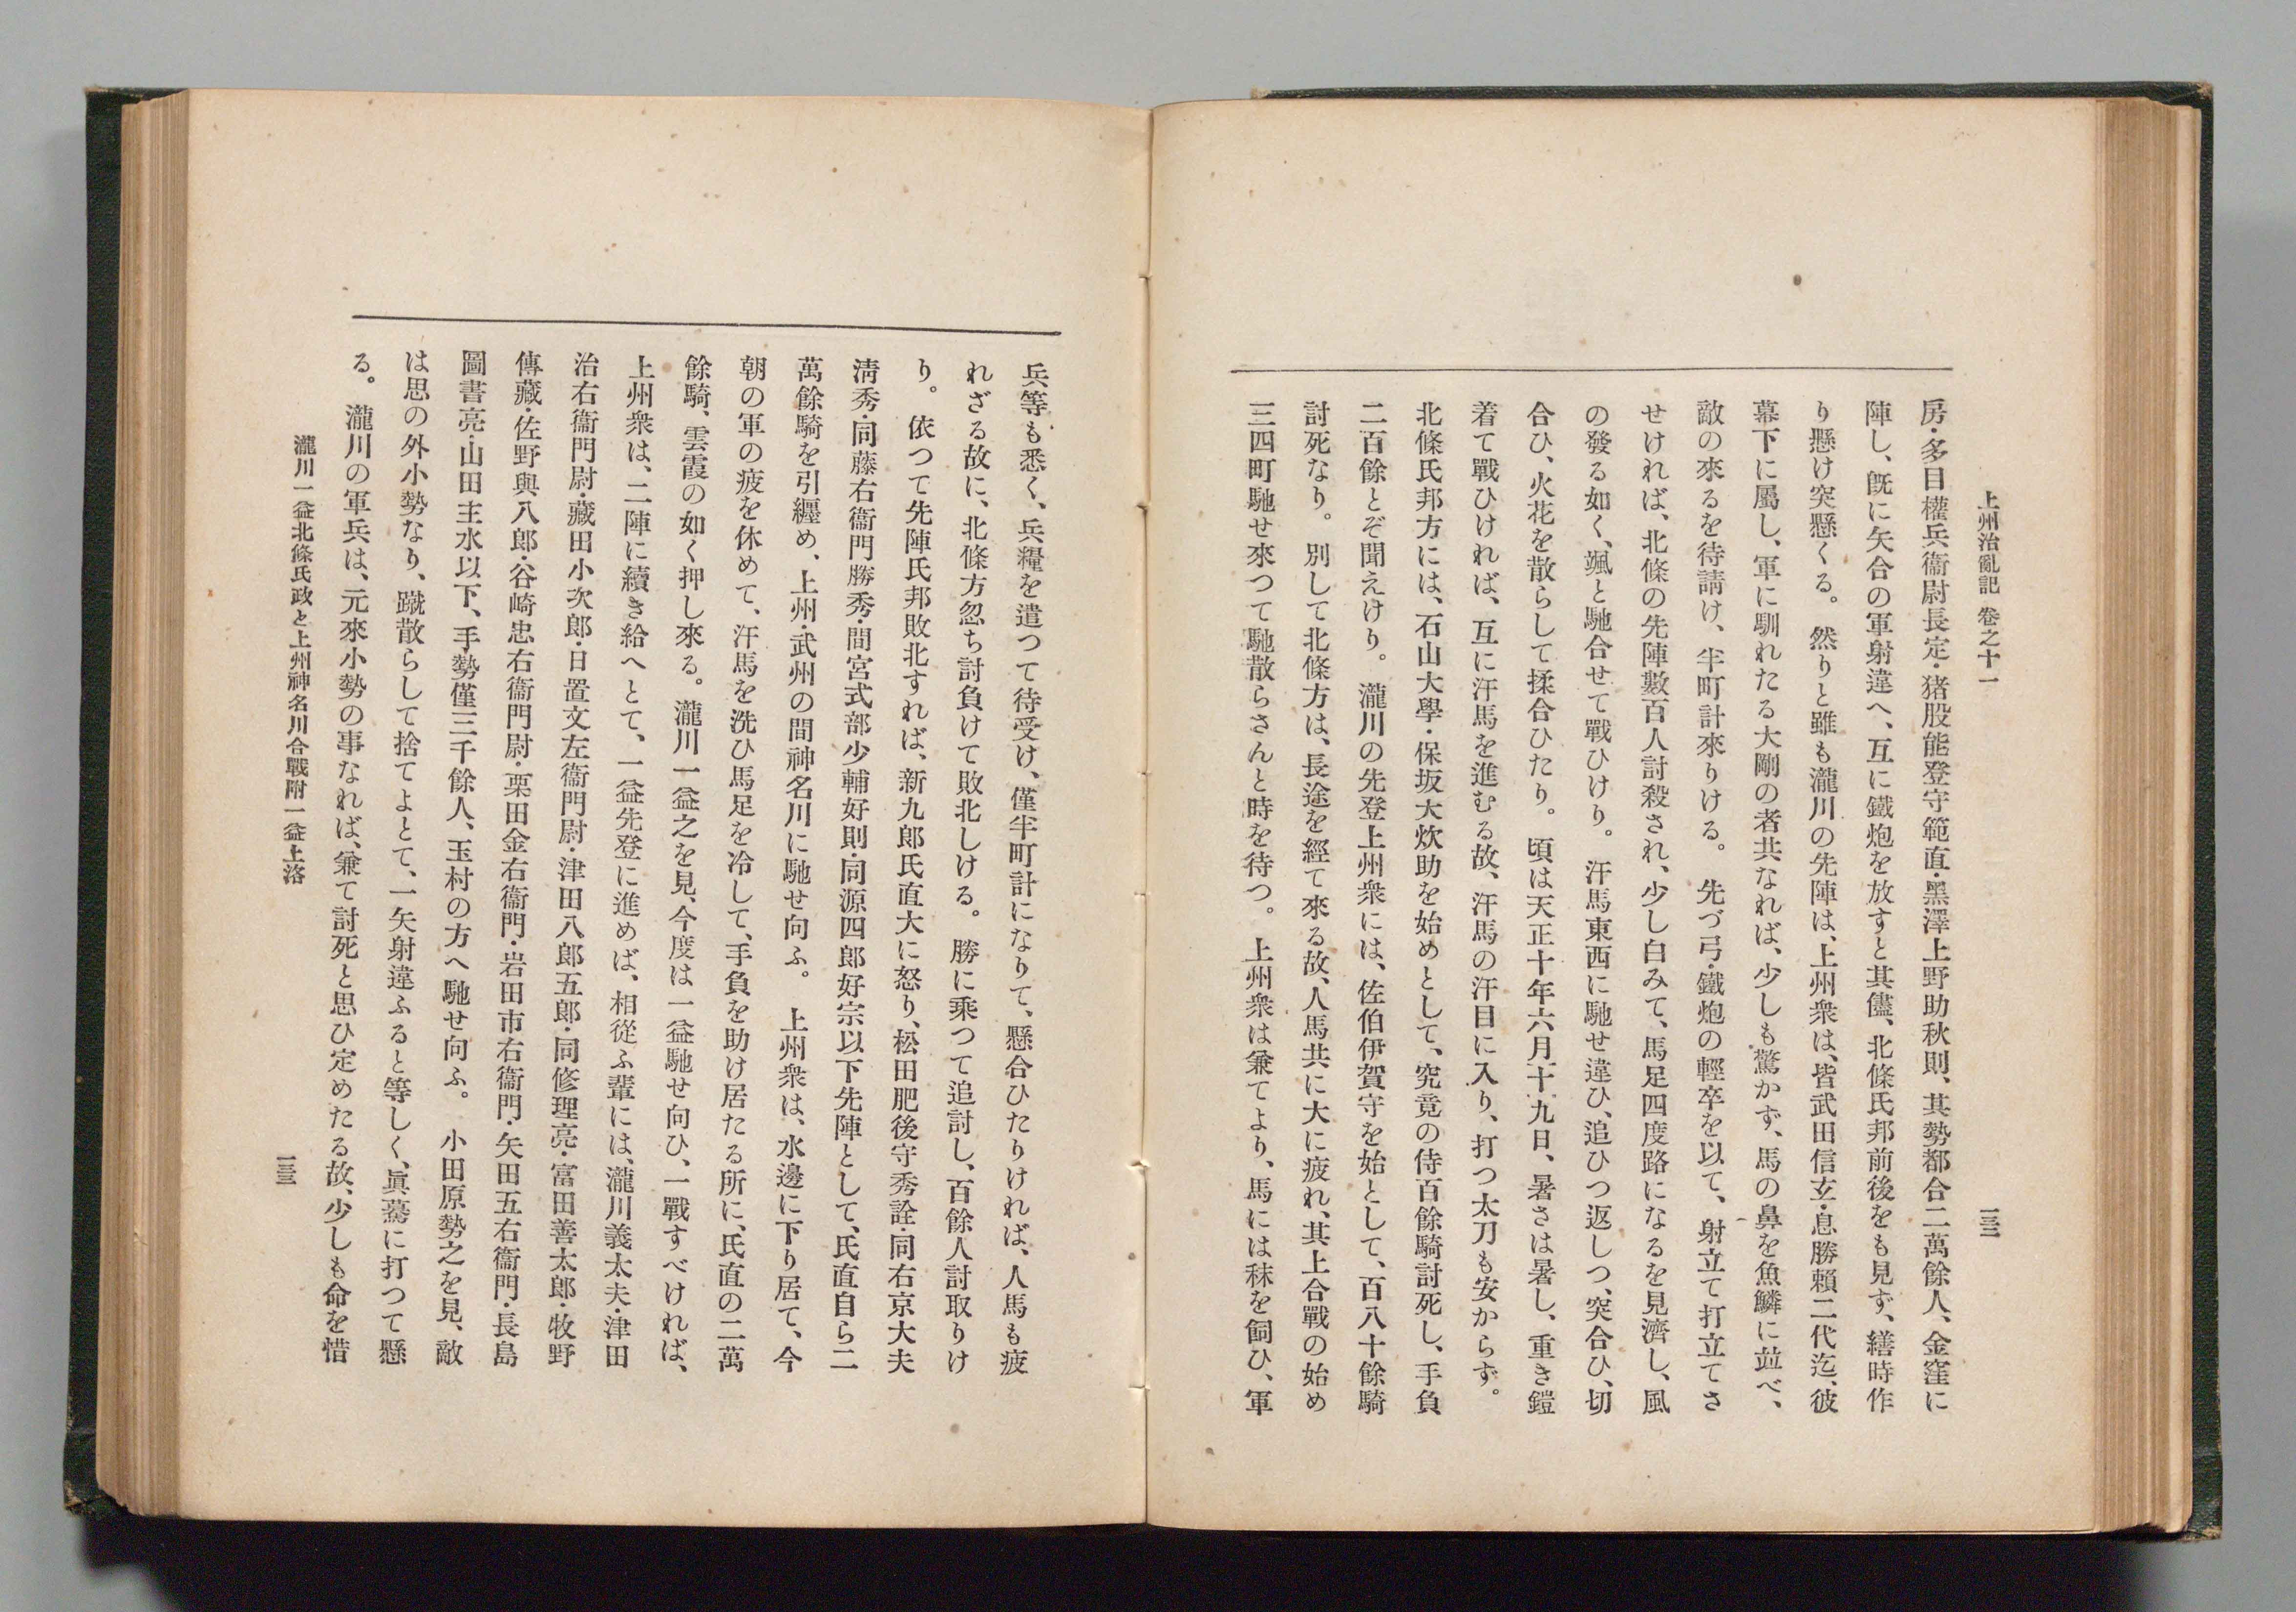 上州治亂記 卷之十一
一三二
房・多目權兵衞尉長定・猪股能登守範直・黑澤上野助秋則、其勢都合二萬餘人、金窪に
陣し、旣に矢合の軍射違へ、互に鐵炮を放すと其儘、北條氏邦前後をも見ず、繕時作
り懸け突懸くる。然りと雖も瀧川の先陣は、上州衆は、皆武田信玄・息勝賴二代迄、彼
幕下に屬し、軍に馴れたる大剛の者共なれば、少しも驚かず、馬の鼻を魚鱗に竝べ、
敵の來るを待請け、半町計來りける。先づ弓・鐵炮の輕卒を以て、射立て打立てさ
せければ、北條の先陣數百人討殺され、少し白みて、馬足四度路になるを見濟し、風
の發る如く、颯と馳合せて戰ひけり。汗馬東西に馳せ違ひ、追ひつ返しつ、突合ひ、切
合ひ、火花を散らして揉合ひたり。頃は天正十年六月十九日、暑さは暑し、重き鎧
着て戰ひければ、互に汗馬を進むる故、汗馬の汗目に入り、打つ太刀も安からず。
北條氏邦方には、石山大學・保坂大炊助を始めとして、究竟の侍百餘騎討死し、手負
二百餘とぞ聞えけり。瀧川の先登上州衆には、佐伯伊賀守を始として、百八十餘騎
討死なり。別して北條方は、長途を經て來る故、人馬共に大に疲れ、其上合戰の始め
三四町馳せ來つて馳散らさんと時を待つ。上州衆は兼てより、馬には秣を飼ひ、軍
兵等も悉く、兵糧を遣つて待受け、僅半町計になりて、懸合ひたりければ、人馬も疲
れざる故に、北條方忽ち討負けて敗北しける。勝に乘つて追討し、百餘人討取りけ
り。依つて先陣氏邦敗北すれば、新九郎氏直大に怒り、松田肥後守秀詮・同右京大夫
淸秀・同藤右衞門勝秀・間宮式部少輔好則・同源四郎好宗以下先陣として、氏直自ら二
萬餘騎を引纒め、上州・武州の間神名川に馳せ向ふ。上州衆は、水邊に下り居て、今
朝の軍の疲を休めて、汗馬を洗ひ馬足を冷して、手負を助け居たる所に、氏直の二萬
餘騎、雲霞の如く押し來る。瀧川一益之を見、今度は一益馳せ向ひ、一戰すべければ、
上州衆は、二陣に續き給へとて、一益先登に進めば、相從ふ輩には、瀧川義太夫・津田
治右衞門尉・藏田小次郎・日置文左衞門尉・津田八郎五郎・同修理亮・富田善太郎・牧野
傳藏・佐野與八郎・谷崎忠右衞門尉・栗田金右衞門・岩田市右衞門・矢田五右衞門・長島
圖書亮・山田主水以下、手勢僅三千餘人、玉村の方へ馳せ向ふ。小田原勢之を見、敵
は思の外小勢なり、蹴散らして捨てよとて、一矢射違ふると等しく、眞驀に打つて懸
る。瀧川の軍兵は、元來小勢の事なれば、兼て討死と思ひ定めたる故、少しも命を惜
瀧川一益北條氏政と上州神名川合戰附一益上洛
一三三